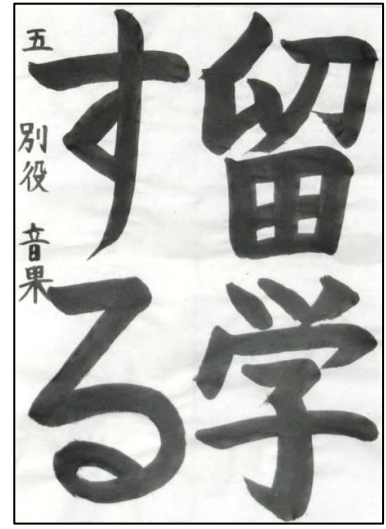 留学
する
五 別役 音果